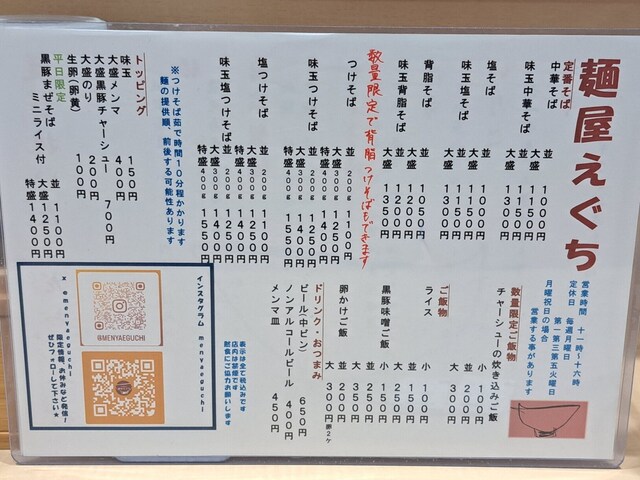 麺屋えぐち
営業時間 十一時〜十六時
定休日 毎週月曜日
第一第三第五火曜日
月曜祝日の場合
営業する事があります
定番そば
中華そば
並 1000円
大盛 1150円
味玉中華そば
並 1150円
大盛 1300円
塩そば
並 1000円
大盛 1150円
味玉塩そば
並 1150円
大盛 1300円
背脂そば
並 1050円
大盛 1200円
味玉背脂そば
並 1200円
大盛 1350円
数量限定で背脂つけそばもできます
つけそば
並 200g 1100円
大盛 300g 1250円
特盛 400g 1400円
味玉つけそば
並 200g 1250円
大盛 300g 1400円
特盛 400g 1550円
塩つけそば
並 200g 1100円
大盛 300g 1250円
特盛 400g 1400円
味玉塩つけそば
並 200g 1250円
大盛 300g 1400円
特盛 400g 1550円
※つけそば茹で時間10分程かかります
麺の提供順、前後する可能性あります
トッピング
味玉 150円
大盛メンマ 400円
大盛黒豚チャーシュー 700円
大盛のり 200円
生卵(卵黄) 100円
平日限定
黒豚まぜそば
ミニライス付
並 1100円
大盛 1250円
特盛 1400円
数量限定ご飯物
チャーシューの炊き込みご飯
小 200円
並 300円
ご飯物
ライス
小 100円
並 150円
大 200円
黒豚味噌ご飯
小 150円
並 250円
大 350円
卵かけご飯
並 200円
大 300円 卵2ケ
ドリンク・おつまみ
ビール(中ビン) 650円
ノンアルコールビール 400円
メンマ皿 450円
表示は全て税込みです
店内は禁煙です
飲食にご協力お願いします
インスタグラム menyaeguchi
@MENYAEGUCHI
X emenyaeguchi
限定情報、お休みなど発信!
ぜひフォローして下さい★